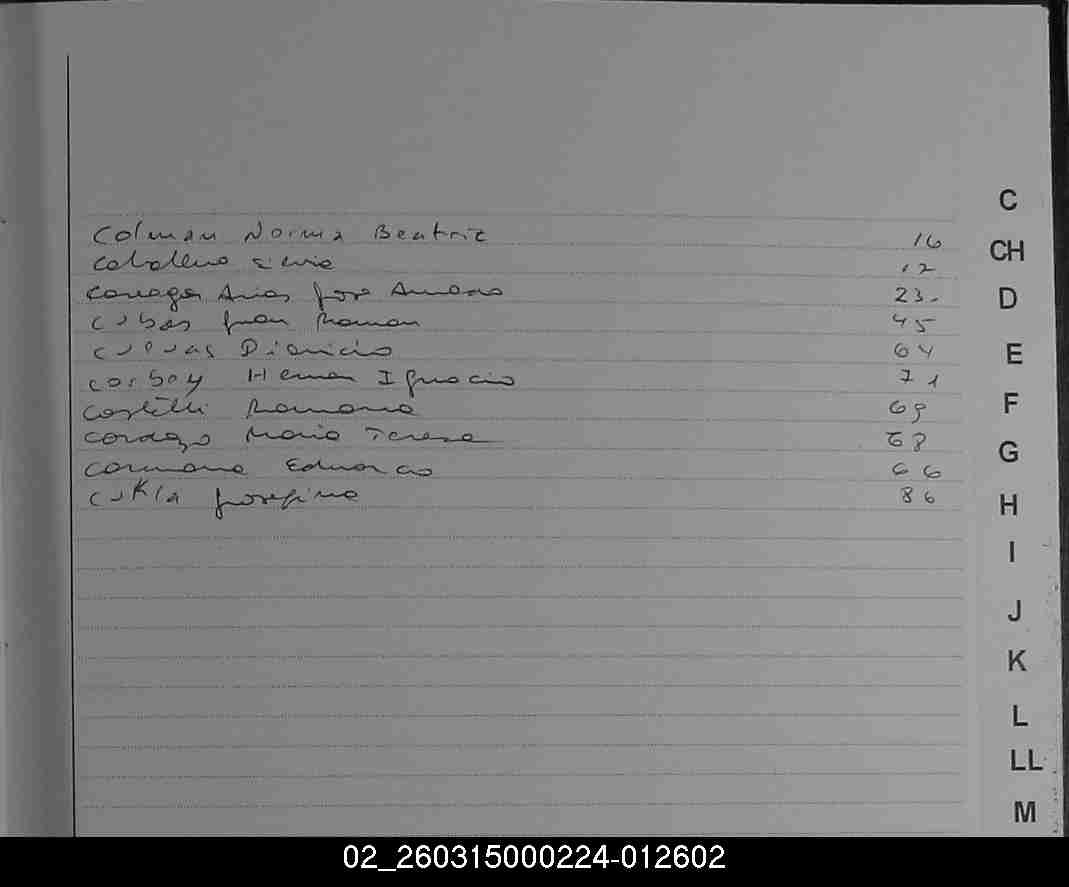 Colman Norma Beatriz 16
Caballero Silvia 12
Careaga Arias Jose 23.
Cubas Juan Roman 45
Cuevas Dionicio 64
Corboy Hernan Ignacio 71
Costelli Romano 69
Cordozo Maria Teresa 68
Carmona Eduardo 66
Cukla Josefina 86
C
CH
D
E
F
G
H
I
J
K
L
LL
M
02_260315000224-012602